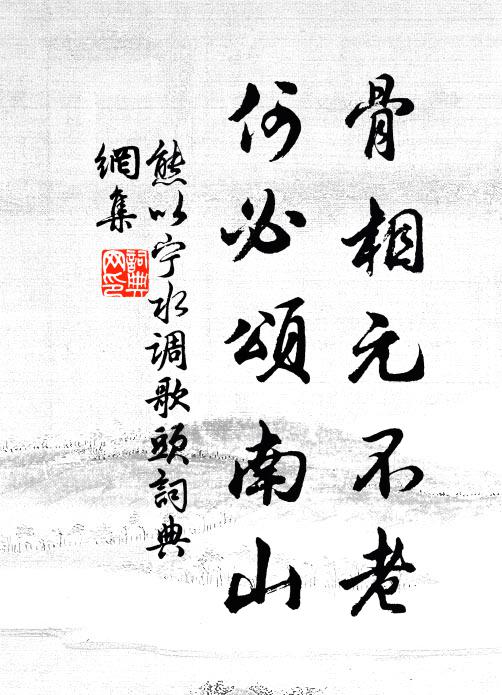 骨相元不老
何必頌南山
熊以宁水调歌頭詞典
網集
詞典
网印